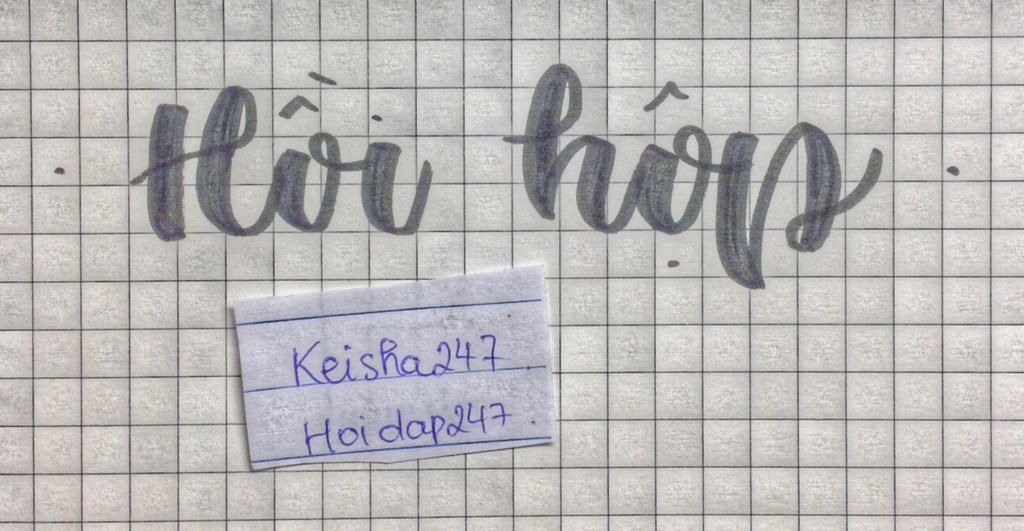 Hồi hộp
Keisha247
Hoidap247.